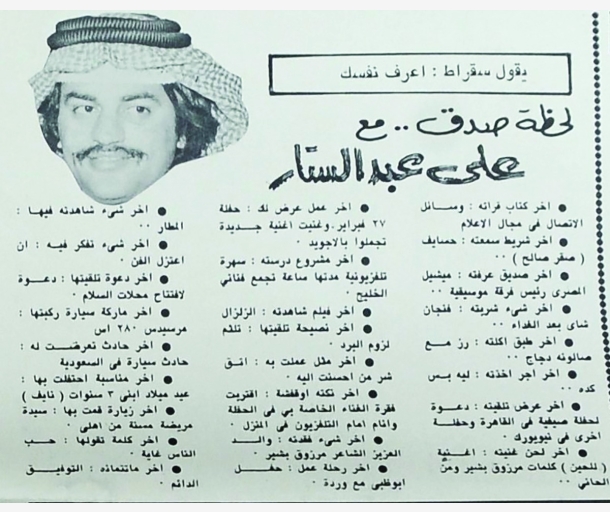 يقول سقراط : اعرف نفسك
لحظة صدق .. مع
على عبد الستار
● اخر كتاب قراته : وسائل
الاتصال فى مجال الاعلام
● اخر شريط سمعته : حسايف
( صقر صالح ) ٠٠
● اخر صديق عرفته : ميشيل
المصرى رئيس فرقة موسيقية ٠٠
● اخر شىء شربته : فنجان
شاى بعد الغداء ٠٠
● اخر طبق اكلته : رز مع
صالونه دجاج ٠٠
● اخر اجر اخذته : ليه بس
كده ٠٠
● اخر عرض تلقيته : دعوة
لحفلة صيفية فى القاهرة وحفلة
اخرى فى نيويورك ٠
● اخر لحن غنيته : اغنية
( للحين ) كلمات مرزوق بشير ومن
الحانى ٠٠
● اخر عمل عرض لك : حفلة
٢٧ فبراير٠وغنيت اغنية جديدة
تجملوا بالاجويد ٠
● اخر مشروع درسته : سهرة
تلفزيونية مدتها ساعة تجمع فنانى
الخليج ٠
● اخر فيلم شاهدته : الزلزال
● اخر نصيحة تلقيتها : تلثم
لزوم البرد ٠
● اخر مثل عملت به : اتق
شر من احسنت اليه ٠
● اخر نكته اوقفضة : اقتربت
فقرة الغناء الخاصة بي فى الحفلة
وانام امام التلفزيون فى المنزل ٠
● اخر شىء فقدته : والد
العزيز الشاعر مرزوق بشير ٠
● اخر رحلة عمل : حفل
ابوظبى مع وردة ٠
● اخر شىء شاهدته فيها :
المطار ٠٠
● اخر شىء تفكر فيه : ان
اعتزل الفن ٠
● اخر دعوة تلقيتها : دعوة
لافتتاح محلات السلام ٠
● اخر ماركة سيارة ركبتها :
مرسيدس ٢٨٠ اس
● اخر حادث تعرضت له :
حادث سيارة فى السعودية
● اخر مناسبة احتفلت بها :
عيد ميلاد ابنى ٣ سنوات ( نايف )
● اخر زيارة قمت بها : سيدة
مريضة مسنة من اهلى ٠
● اخر كلمة تقولها : حب
الناس غاية ٠
● اخر ماتتمناه : التوفيق
الدائم ٠